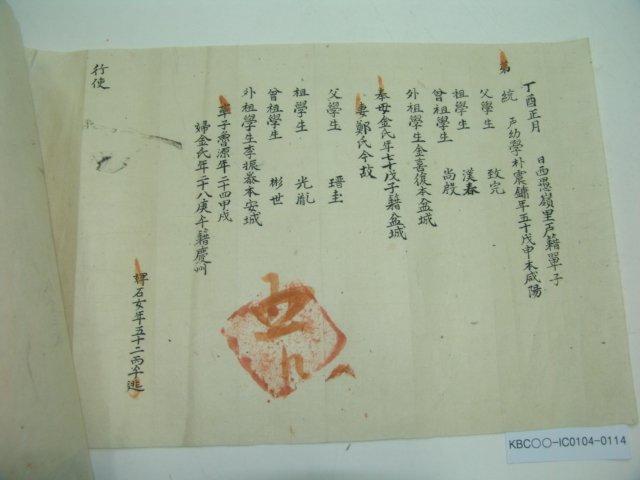 丁酉正月 日西慝嶺里戶籍單子
第 統 戶幼學朴震鏞年五十戊申本咸陽
父學生 致完
祖學生 漢春
曾祖學生 尚殷
外祖學生金喜復本盆城
奉母金氏年七十戊子籍盆城
妻鄭氏今故
父學生 瑨圭
祖學生 光胤
曾祖學生 彬世
外祖學生李振 本安城
率子 漂年二十四甲戌
婦金氏年二十八庚午籍慶州
婢石女年五十二丙午逃
行使
KBC○○-IC0104-0114